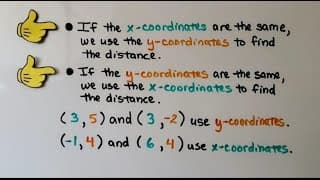 • If the x-coordinates are the same,
we use the y-coordinates to find
the distance.
• If the y-coordinates are the same,
we use the x-coordinates to find
the distance.
(3,5) and (3,-2) use y-coordinates.
(-1,4) and (6,4) use x-coordinates.